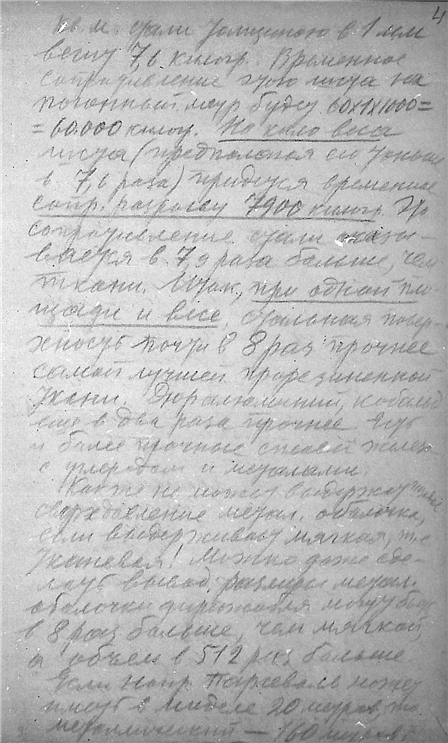 4
кв. м. стали толщиною в 1 мм
весит 7,6 килогр. Временное
сопротивление этого листа на
погонный метр будет 60x1x1000=
= 60.000 килог. На кило веса
листа (предполагая его тоньше
в 7,6 раза) придется временное
сопр. разрыву 7900 килогр. Это
сопротивление стали оказы-
вается в 7,9 раза больше, чем
ткани. Итак, при одной пло-
щади и весе стальная повер-
хность почти в 8 раз прочнее
самой лучшей прорезиненной
ткани. Дюралюминий, кобальт
еще в два раза прочнее. Есть
и более прочные сплавы желез
с углеродом и металлами.
Как же не может выдержать
сверхдавление метал. оболочка,
если выдерживает мягкая, т.е.
тканевая! Можно даже сде-
лать вывод: размеры метал.
оболочки дирижабля могут быть
в 8 раз больше, чем мягкой
а объем в 512 раз больше
Если напр. Парсеваль может
иметь в миделе 20 метров, то
металлический — 160 метров.